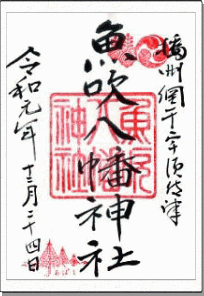 播州網干宇須伎津
魚吹八幡神社
令和元年十二月二十四日
魚吹
八幡
神社
あぼし